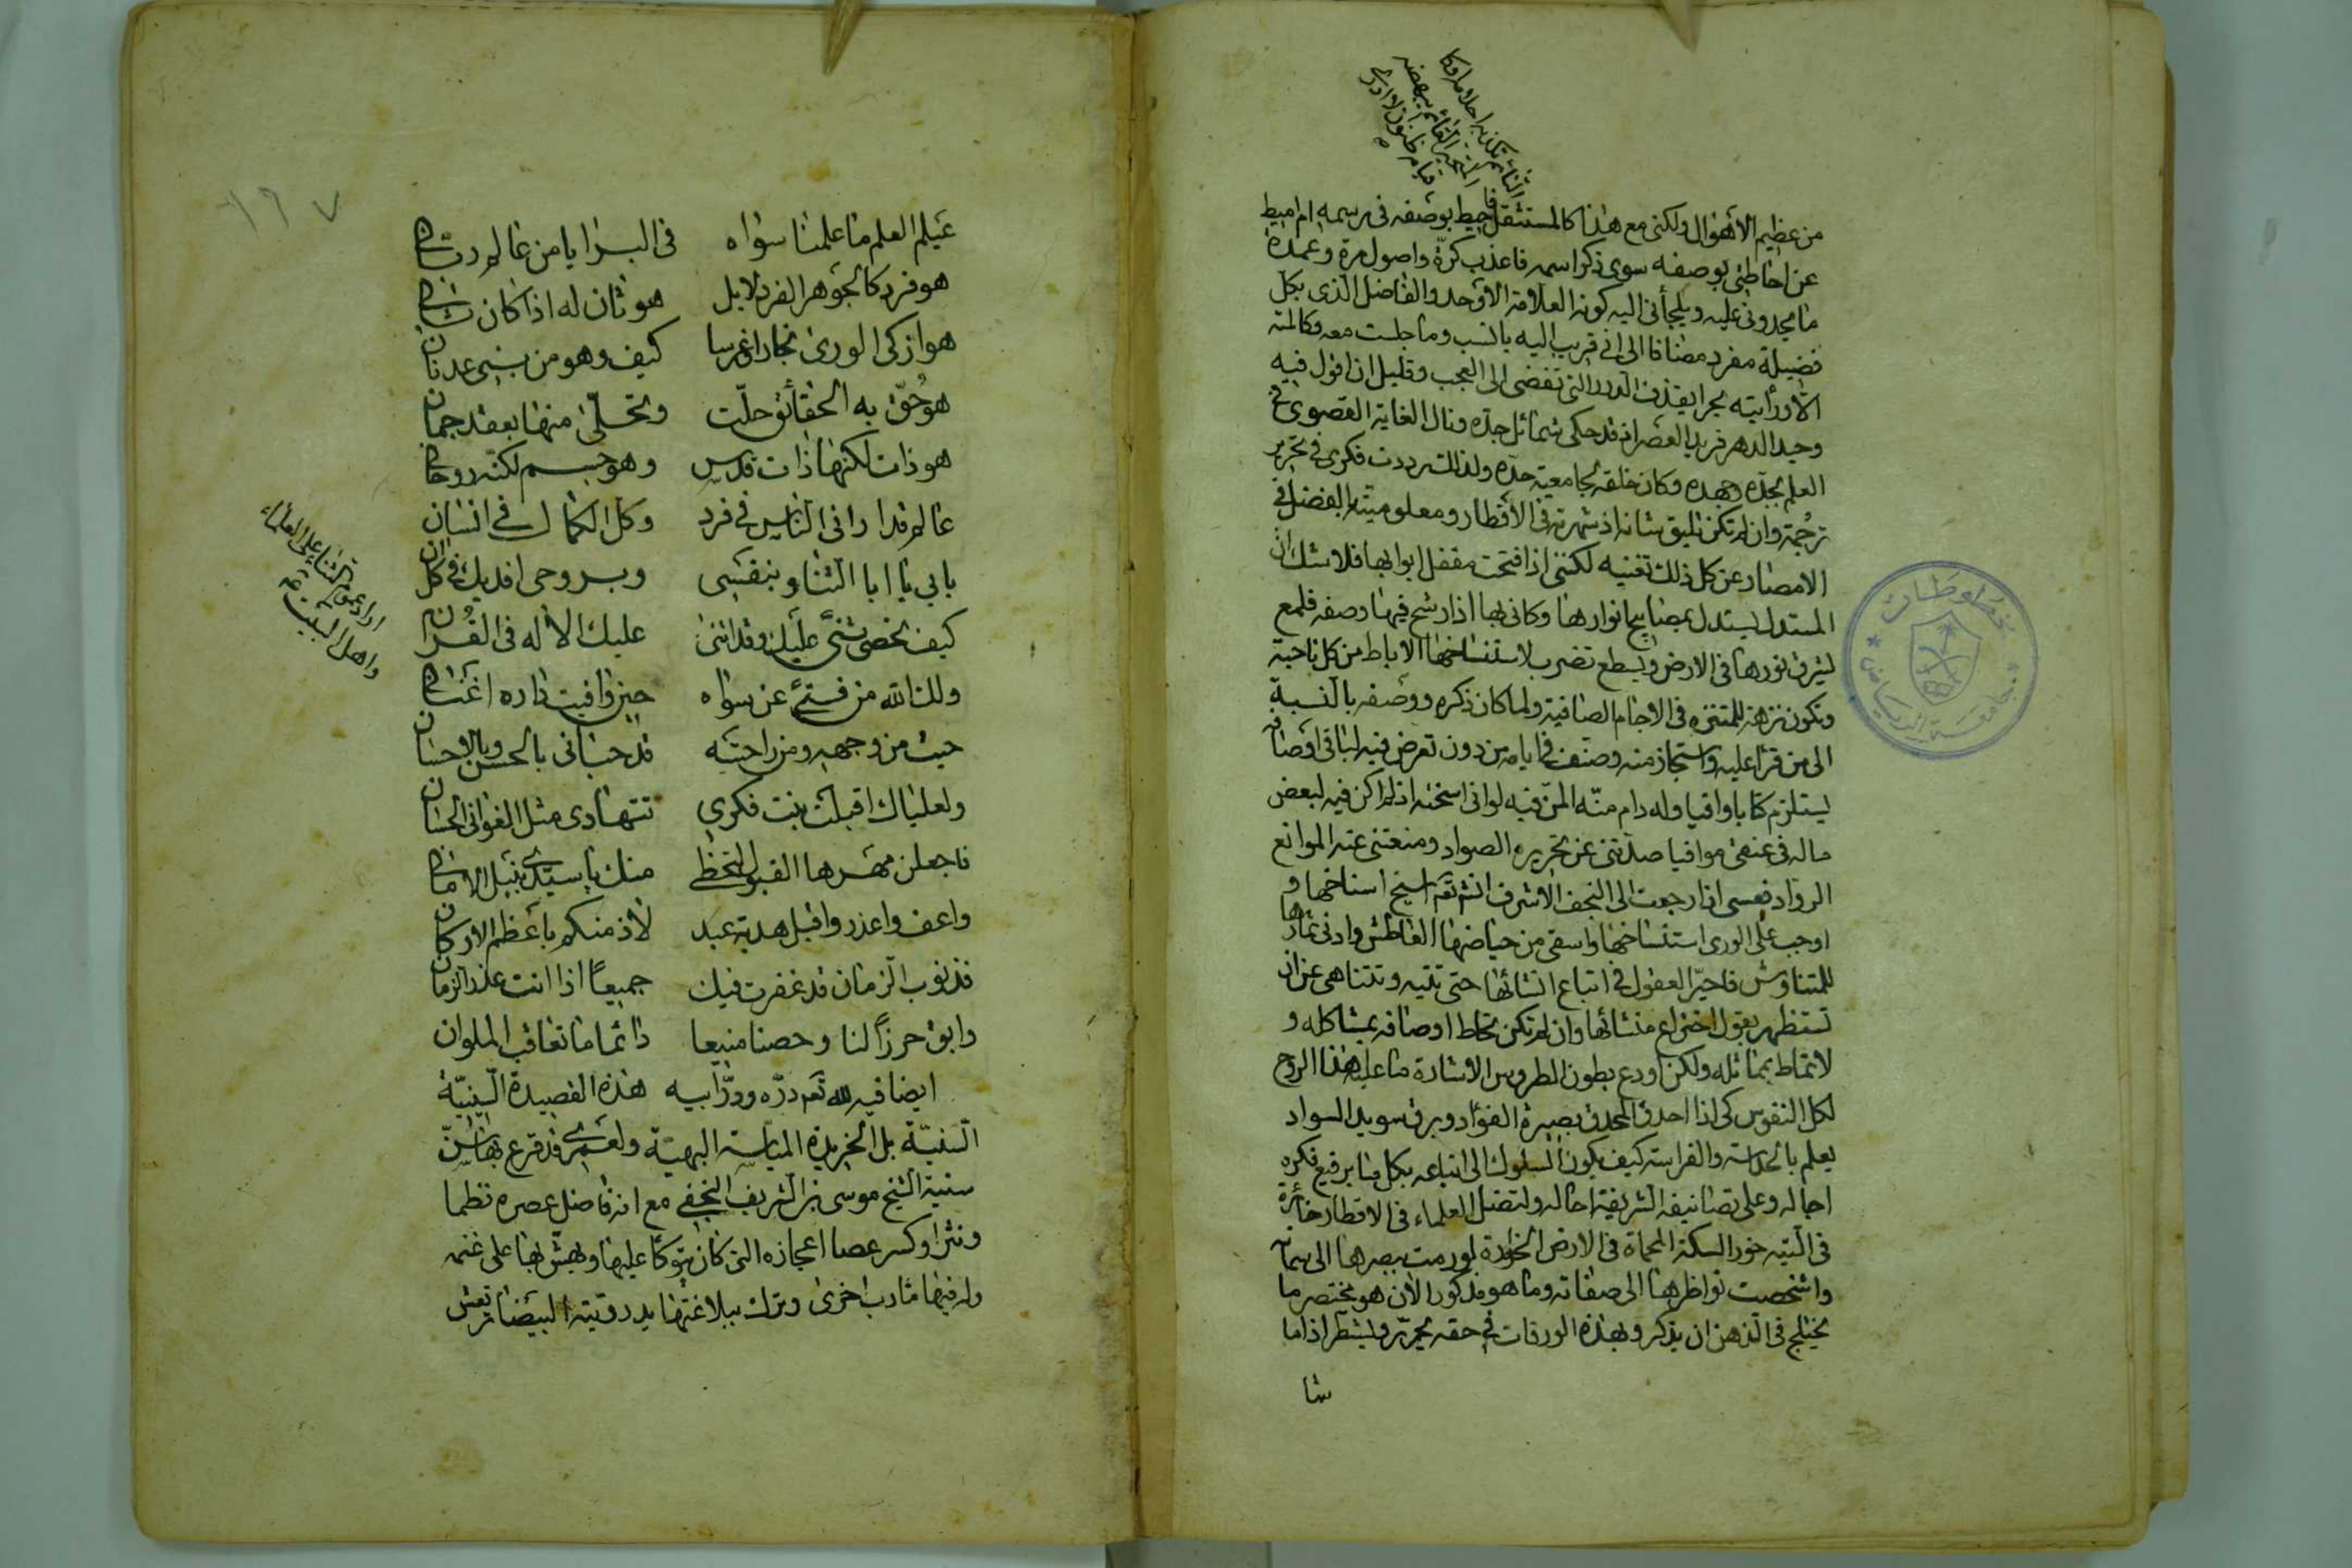 من عظيم الأهوال ولكني مع هذا كالمستثقل فا حيط بوصفه في رسمه ام اميط
عن احاطتي بوصفه سوى ذكر اسمه فاعذب كرّة واصول مرة وعمدة
ما يحدوني عليه ويلجأني اليه كونه العلامة الأوحد والفاضل الذي بكل
فضيلة مفرد مضافا الى اني قريب اليه بالنسب وما جلست معه وكالمته
الّا ورأيته بحرا يقذف الدرر التي تفضي الى العجب وقليل ان اقول فيه
وحيد الدهر فريد العصر اذ قد حكى شمائل جده ونال الغاية القصوى في
العلم بجدّه وجهده وكان خلقه بجامعية حده ولذلك ترددت فكري في تحرير
ترجمة وان لم تكن تليق بشانه اذ شهرته في الأقطار ومعلوميته بالفضل في
الامصار عن كل ذلك تغنيه لكنني اذا فتحت مقفل ابوابها فلا شك ان
المستدل يستدل بمصابيح انوارها وكاني بها اذا رشح فيها وصفه فلمع
ليشرق نورها في الارض ويسطع تضرب لاستنساخها الاباط من كل ناحية
وتكون نزهة للمتنزه في الاجام الصافية ولما كان ذكره ووصفه بالنسبة
الى من قرأ عليه واستجاز منه وصنف في ايامه من دون تعرض فيه لباقي اوصافه
يستلزم كتابا وافيا وله دام منّه المنّ فيه لو اني اسخته اذ لم اكن فيه لبعض
ماله في عنقي موافيا صدّتني عن تحريره الصواد ومنعتني عنه الموانع
الرواد فعسى اذا رجعت الى النجف الأشرف انشر ثم انسخ اسناخها و
اوجب على الورى استنساخها واسقي من حياضها العاطش وادني ثمارها
للمتناوش فاحيّر العقول في اتباع انشائها حتى تتيه وتتناهى عن ان
تستظهر بقول اختراع منشائها وان لم تكن تحاط اوصافه بمشاكله و
لا تماط بمماثله ولكن اودع بطون الطروس الاشارة ما عليه هذا الروح
لكل النفوس كي اذا احدق المحدق بصيرة الفؤاد وبرق سويد السواد
يعلم بالحدس والفراسة كيف يكون السلوك الى اتباعه بكل ما برفيع فكره
اجاله وعلى تصانيفه الشريفة احاله ولتضل العلماء في الاقطار خائرة
في التيه خور السكة المحماة في الارض الخوارة لو رمت ببصرها الى سمائه
واشخصت نواظرها الى صفاته وما هو مذكور الأن هو مختصر ما
يختلج في الذهن ان يذكر وبهذه الورقات في حقه يحرّر ويسطر اذ اما
شا
عيلم العلم ما علمنا سواه في البرايا من عالم رباني
هو فرد كالجوهر الفرد لا بل هو ثان له اذا كان ثاني
هو ازكى الورى نجارا وغرسا كيف وهو من بني عدنان
هو حُقّ به الحقائق حلّت وتحلّى منها بعقد جمان
هو ذات لكنها ذات قدس وهو جسم لكنّه روحاني
عالم قد اراني الناس في فرد وكل الكمال في انسان
بابي يا ابا الثنا وبنفسي وبروحي افديك في كل ان
كيف نحصي ثنىً عليك وقد اثنى عليك الاله في القُران
ولك الله من فتىً عن سواه حين وافيت داره اغناني
حيث من وجهه ومن راحتيه قد حباني بالحسن وبالاحسان
ولعلياك اقبلت بنت فكري تتهادى مثل الغواني الحسان
فاجعلن مهرها القبول لتحظى منك يا سيّدي بنيل الاماني
واعف واعذر واقبل هدية عبد لاذ منكم باعظم الاركان
فذنوب الزمان قد غفرت فيك جميعاً اذا انت عذر الزمان
وابق حرزاً لنا وحصنا منيعا دائما ما تعاقب الملوان
ايضا فيه لله تعم درّه وورّ ابيه هذه القصيدة السّينيّة
السّنيّة بل الخريدة الميّاسة البهيّة ولعمري قد قرع بها سّن
سنية الشيخ موسى بن الشريف النجفي مع انه فاضل عصره نظما
ونثرا وكسر عصا اعجازه التي كان يتوكأ عليها ويهش بها على غنمه
وله فيها مأرب اخرى وترك ببلاغتها يد روقيته البيضاء ترتعش
اراد عموم الثنا على العلماء
واهل البيت